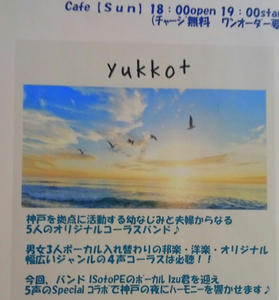 Cafe [Sun] 18:00open 19:00sta
(チャージ無料 ワンオーダー
yukko+
神戸を拠点に活動する幼なじみと夫婦からなる
5人のオリジナルコーラスバンド♪
男女3人ボーカル入れ替わりの邦楽・洋楽・オリジナル
幅広いジャンルの4声コーラスは必聴!!
今回、バンド ISotoPEのボーカル Izu君を迎え
5声のSpecialコラボで神戸の夜にハーモニーを響かせます♪